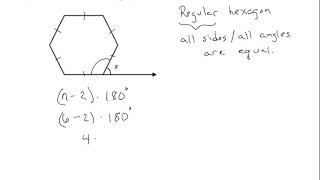 Regular hexagon
all sides/all angles
are equal.
x
(n-2) · 180°
(6-2) · 180°
4 ·